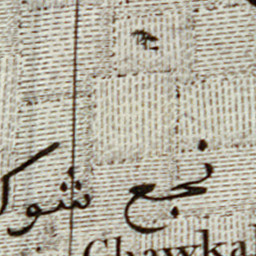 نجع شوك
Chawkal